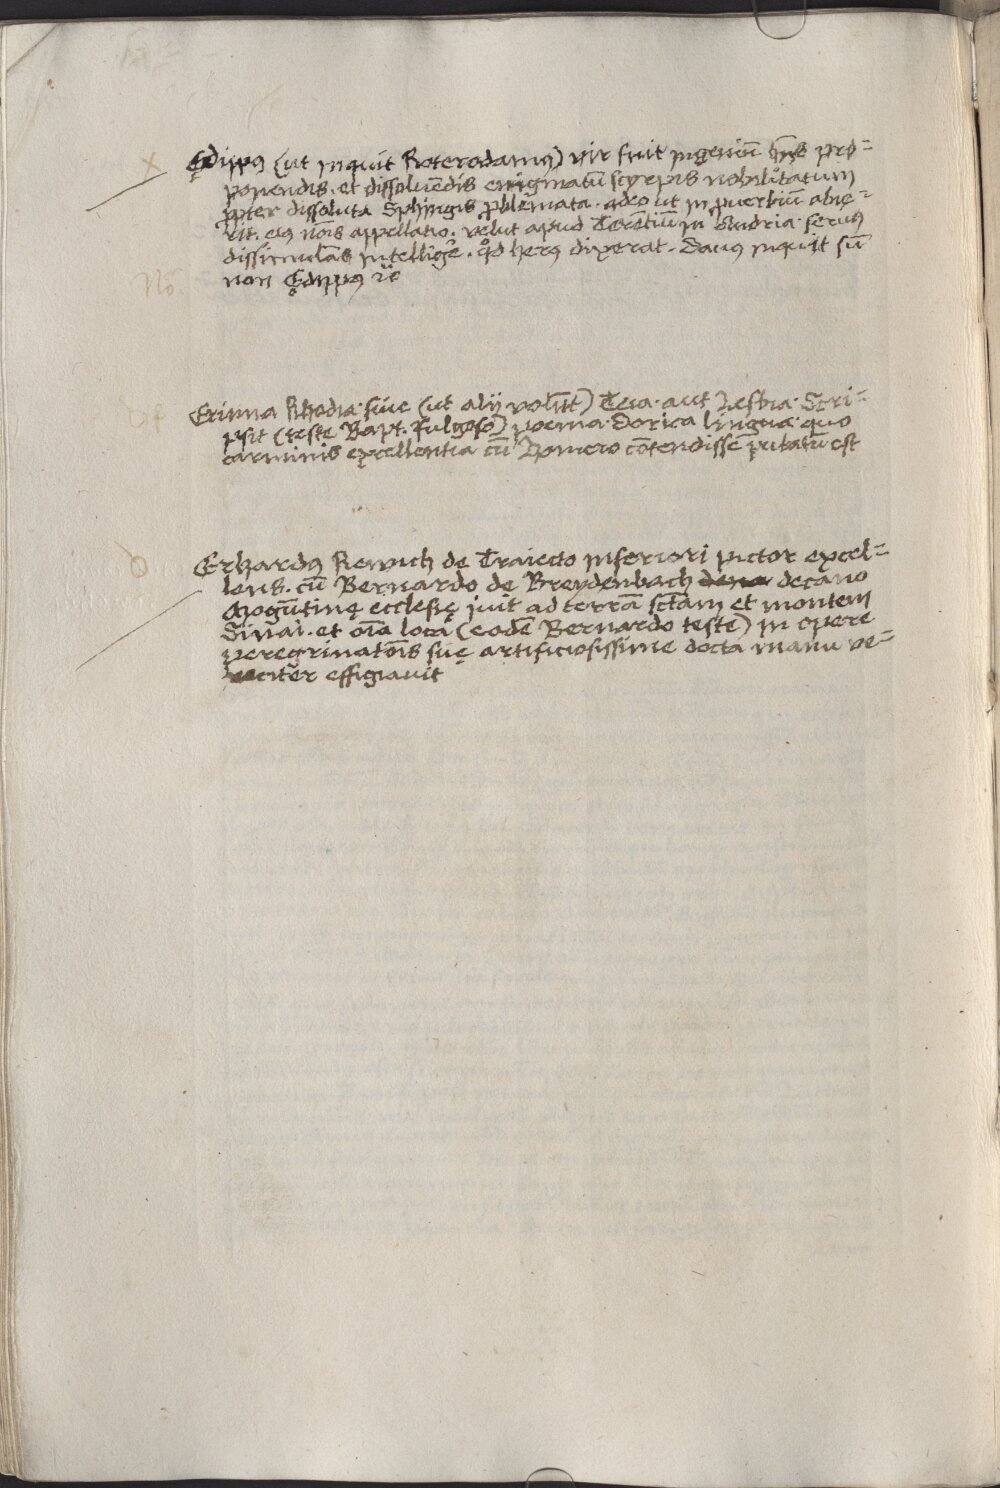 Ędippꝰ (ut inquit Roterodamꝰ) vir fuit ingeniū hñs pro=
ponendis et dissoluēdis enigmatū scyrpis nobilitatum
ꝓpter dissoluta Sphingis ꝓblemata. adeo ut in ꝓuerbiū abie=
rit. eiꝰ noīs appellatio. velut apud Terentiū in Andria. seruꝰ
dissimulās intelligēre. qd herꝰ dixerat. Dauꝰ inquit sū
non Ędippꝰ ꝛc̄
No.
Erinna Rhodia. siue (ut alij volūt) Teia. aut Lesbia. Scri=
psit (teste Bapt. Fulgoso) poema. Dorica lingua. quo
carminis excellentia cū Homero cōtendisse putata est
Erhardꝰ Rewich de Traiecto inferiori pictor excel=
lens. cū Bernardo de Breydenbach decano
Mogūtinę ecclesię iuit ad terrā sctam et montem
Sinai. et oīa loca (eodē Bernardo teste) in opere
peregrinatōis suę artificiosissime docta manu ve=
raciter effigiauit